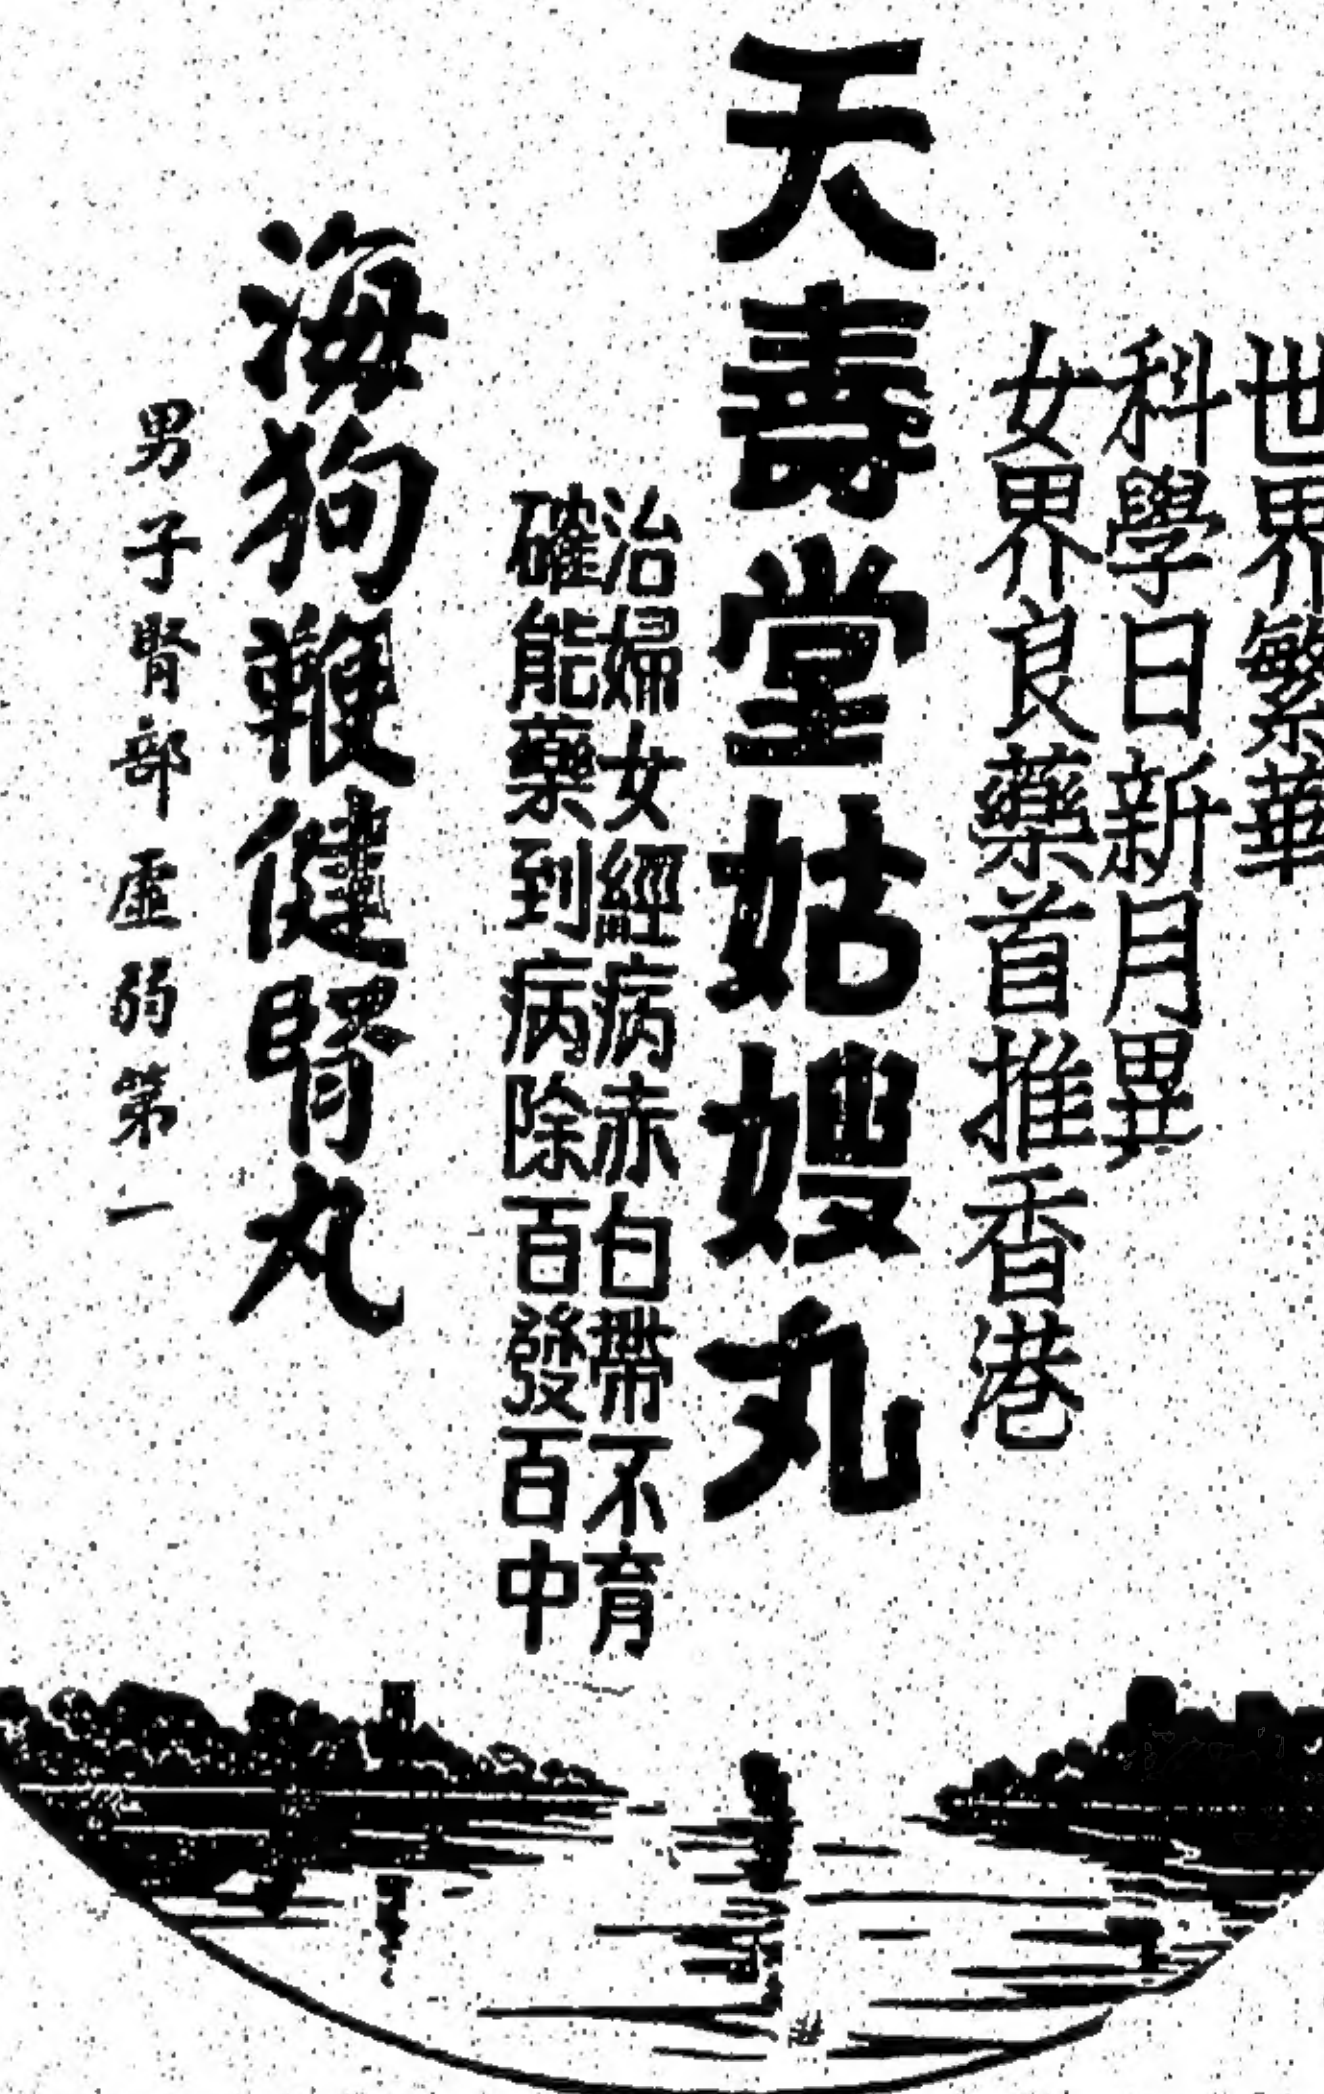 世界繁華
科學日新月異
女界良藥首推香港
天壽堂姑嫂丸
治婦女經病赤白帶不育
確能藥到病除百發百中
海狗鞭健腎丸
男子腎部虛弱第一